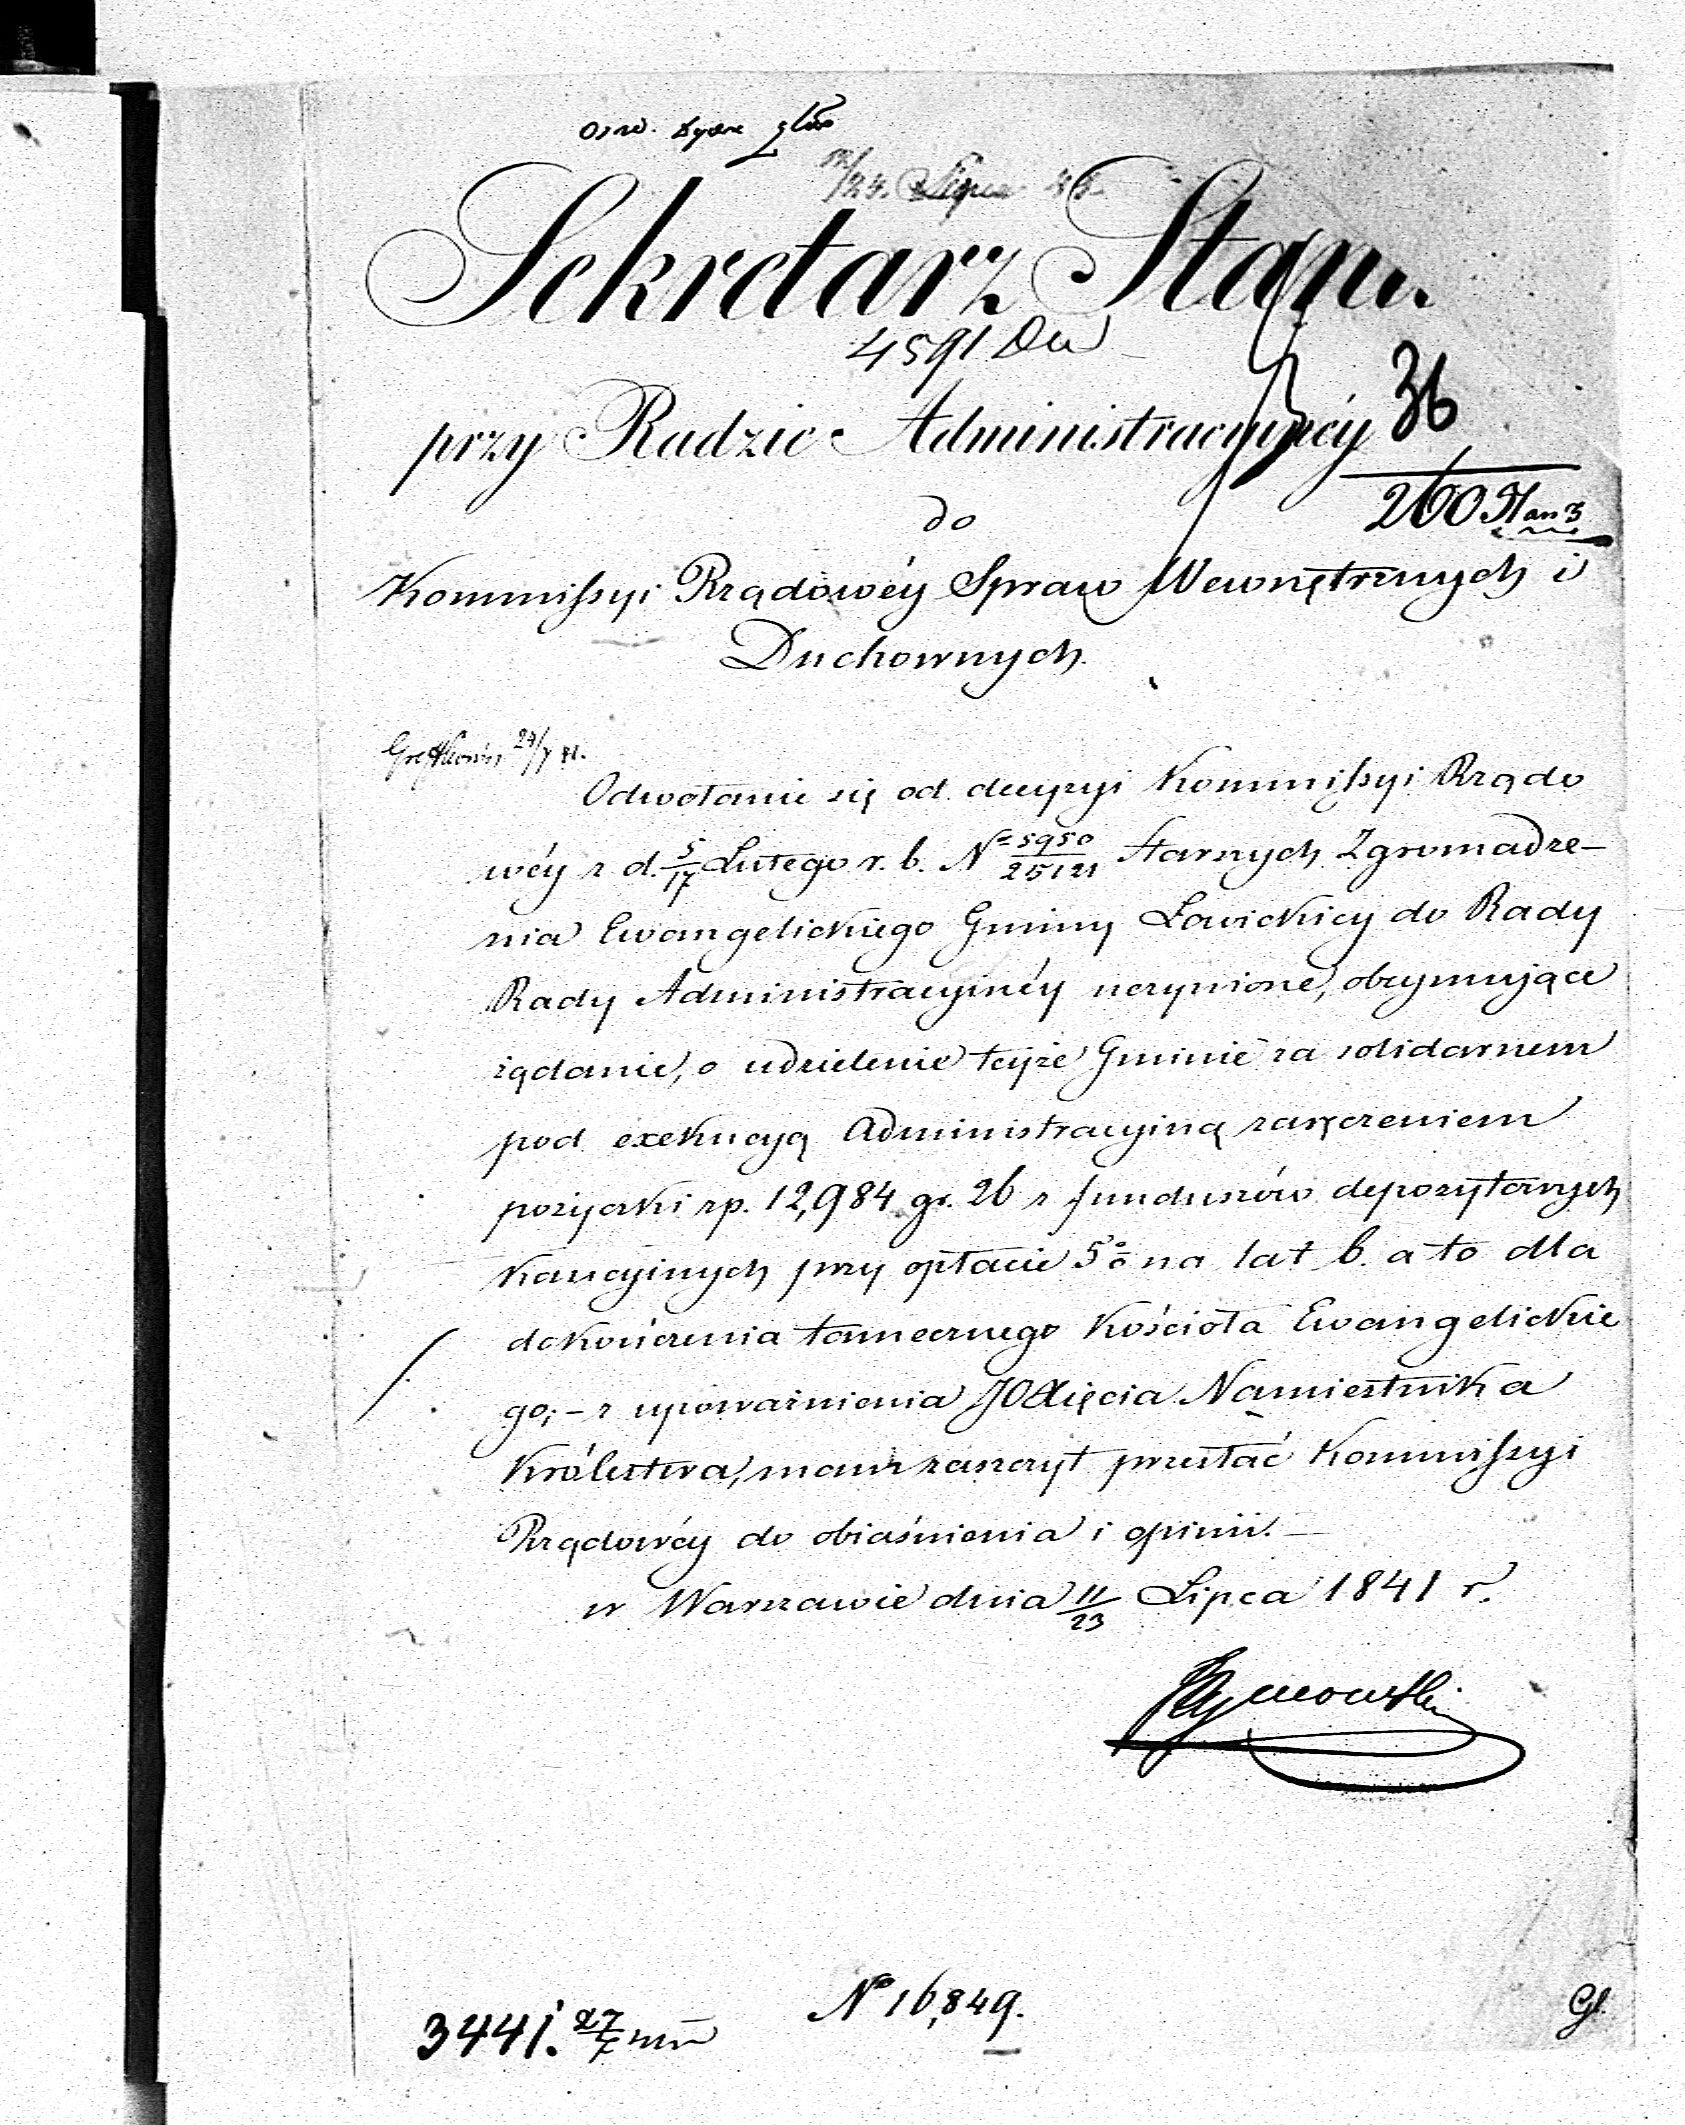 12/24. Lipca 41.
Sekretarz Stanu.
4591 Du
przy Radzie Administracyjnéy
36
260
do
Kommissyi Rządowéy Spraw Wewnętrznych i
Duchownych.
24/7 41.
Odwołanie się od decyzyi Kommissyi Rządo
wéy z d. 5/17 Lutego r. b. No 5950/25121 Starszych Zgromadze-
nia Ewangelickiego Gminy Łowickiey do Rady
Rady Administracyinéy uczynione, obeymuiące
żądanie, o udzielenie teyże Gminie za solidarnem
pod exekucyą Administracyiną zaręczeniem
pożyczki zp. 12,984 gr. 26 z funduszów depozytowych
kaucyinych przy opłacie 5% na lat 6. a to dla
dokończenia tamecznego Kościoła Ewangelickie
go; – z upoważnienia JO Xięcia Namiestnika
Królestwa, mam zaszczyt przesłać Kommissyi
Rządowéy do obiaśnienia i opinii. –
w Warszawie dnia 11/23 Lipca 1841 r.
No 16,849.
3441. 27/7